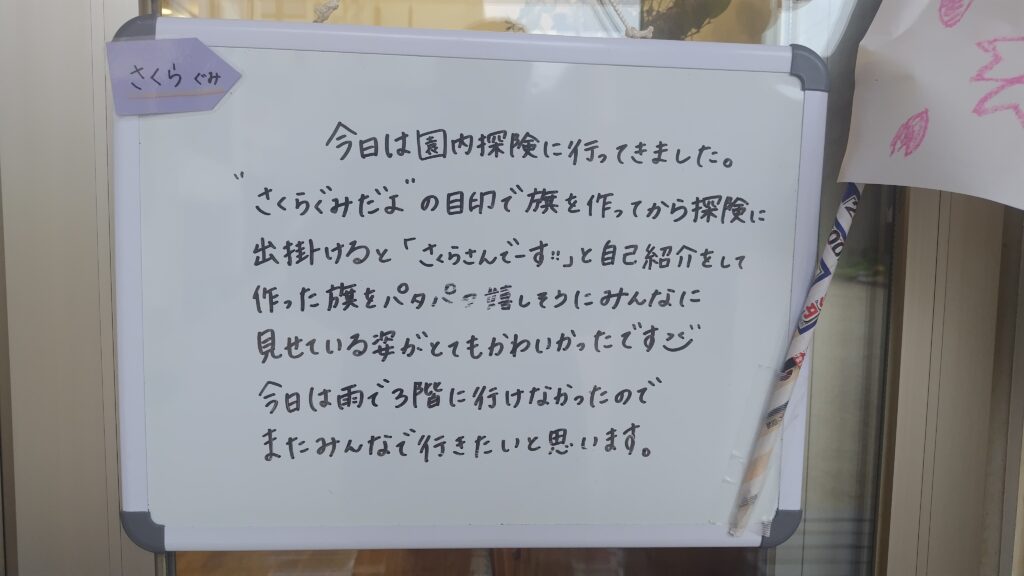 さくら ぐみ
今日は園内探険に行ってきました。
"さくらぐみだよ"の目印で旗を作ってから探険に
出掛けると「さくらさんでーす!!」と自己紹介をして
作った旗をパタパタ嬉しそうにみんなに
見せている姿がとてもかわいかったです
今日は雨で3階に行けなかったので
またみんなで行きたいと思います。